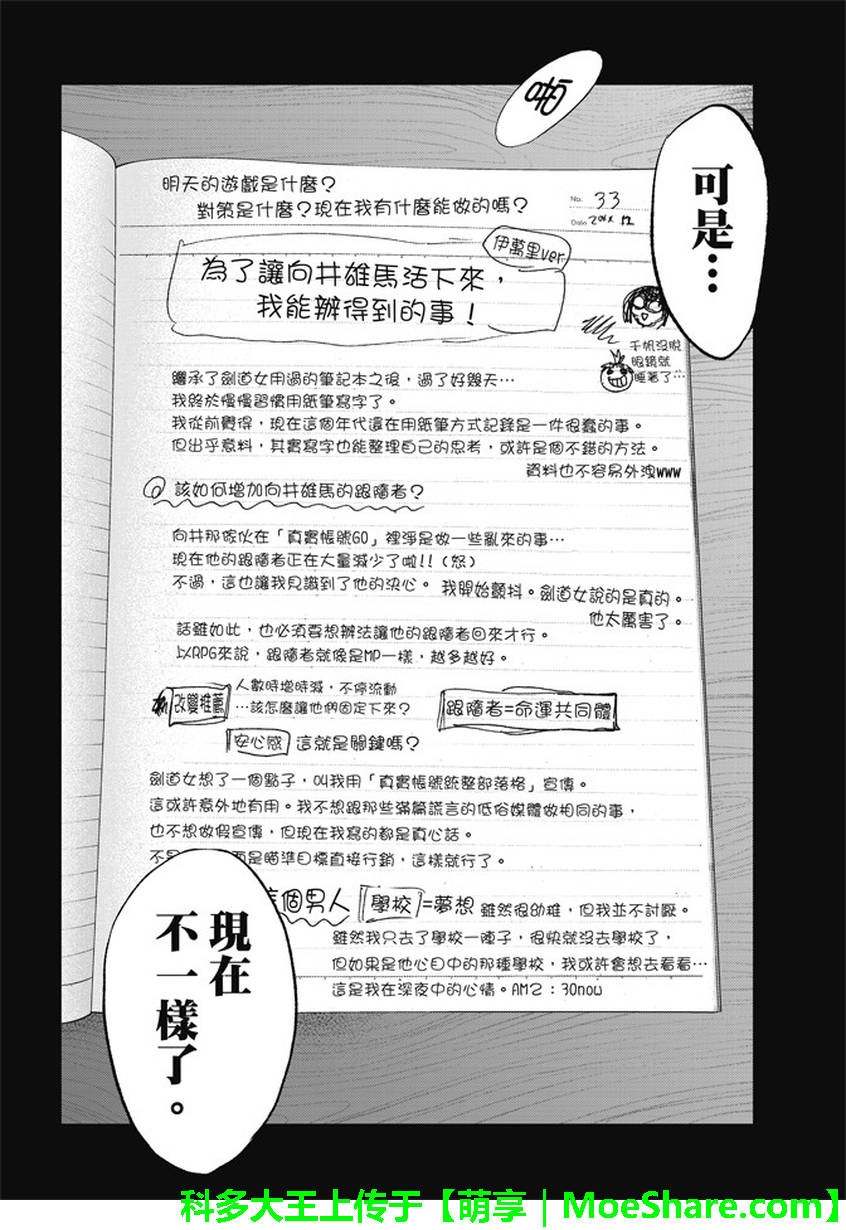 啪
可是…
明天的遊戲是什麼？
對策是什麼？現在我有什麼能做的嗎？
No. 33
Date 20XX 12
伊萬里ver.
為了讓向井雄馬活下來，
我能辦得到的事！
千帆沒脫
眼鏡就
睡著了…
繼承了劍道女用過的筆記本之後，過了好幾天…
我終於慢慢習慣用紙筆寫字了。
我從前覺得，現在這個年代還在用紙筆方式記錄是一件很蠢的事。
但出乎意料，其實寫字也能整理自己的思考，或許是個不錯的方法。
資料也不容易外洩www
該如何增加向井雄馬的跟隨者？
向井那傢伙在「真實帳號GO」裡淨是做一些亂來的事…
現在他的跟隨者正在大量減少了啦!!（怒）
不過，這也讓我見識到了他的決心。我開始顫抖。劍道女說的是真的。
他太厲害了。
話雖如此，也必須要想辦法讓他的跟隨者回來才行。
以RPG來說，跟隨者就像是MP一樣，越多越好。
改變推薦
人數時增時減，不停流動
…該怎麼讓他們固定下來？
跟隨者=命運共同體
安心感 這就是關鍵嗎？
劍道女想了一個點子，叫我用「真實帳號統整部落格」宣傳。
這或許意外地有用。我不想跟那些滿篇謊言的低俗媒體做相同的事，
也不想做假宣傳，但現在我寫的都是真心話。
不是 而是瞄準目標直接行銷，這樣就行了。
這個男人 學校=夢想 雖然很幼稚，但我並不討厭。
雖然我只去了學校一陣子，很快就沒去學校了，
但如果是他心目中的那種學校，我或許會想去看看…
這是我在深夜中的心情。AM2：30now
現在
不一樣了。
科多大王上传于【萌享｜MoeShare.com】